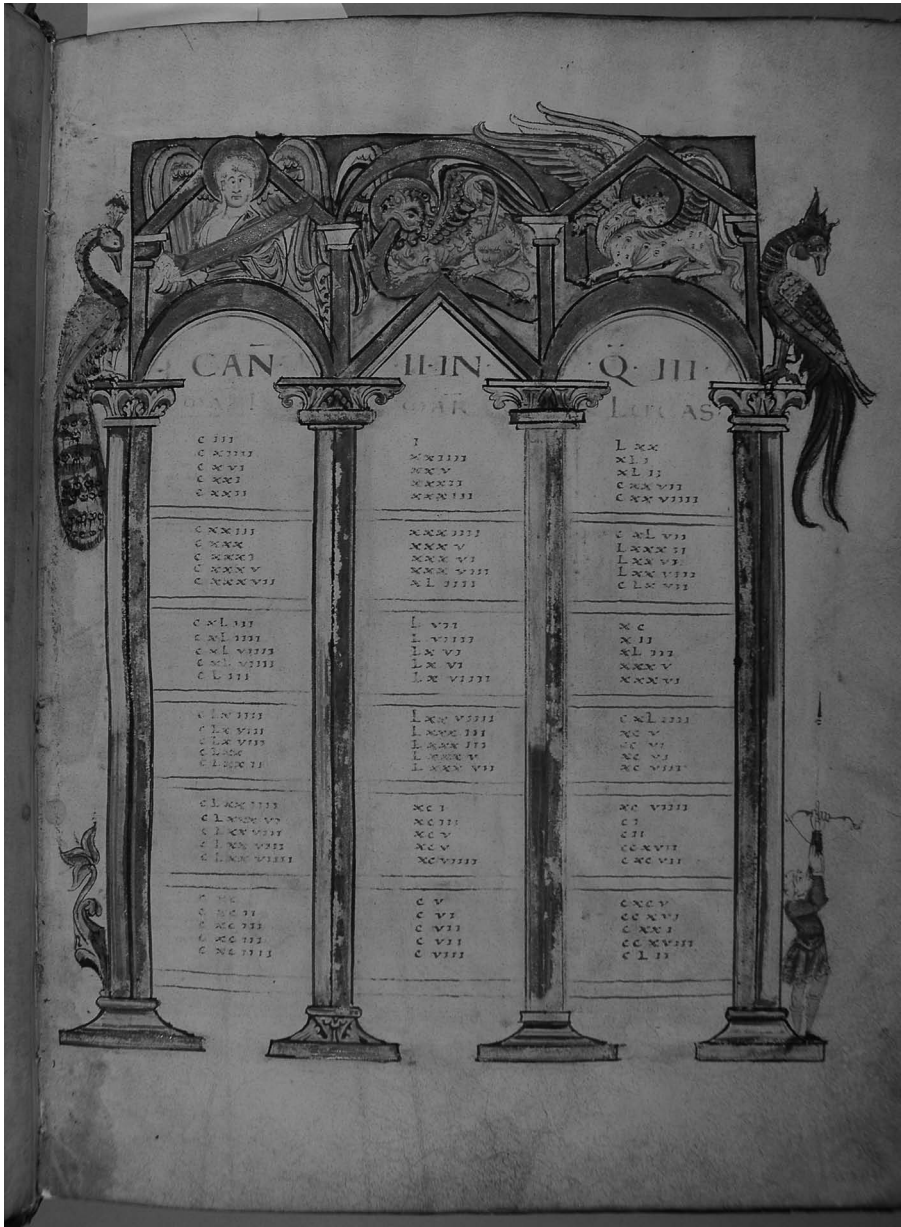 CAN̄ II·IN· Q̄·III·
MAR̄ LUCAS
c iii i Lxx
c xiiii xxiiii xLi
c xvi xxv xLii
c xxi xxxii c xxvii
c xxii xxxiii c xxviiii
c xxiii xxxiiii c xLvii
c xxx xxxv Lxxxii
c xxxi xxxvi Lxxvi
c xxxv xxxviii Lxxviii
c xxxvii xLiiii cLxvii
c xLiii Lvii xc
c xLiiii Lviiii xii
c xLviiii Lxvi xLiii
c xLviiii Lxvi xxxv
cLiii Lxviiii xxxvi
cLxiiii Lxxviiii cxLiiii
cLxviii Lxxxiii xcv
cLxviii Lxxxiii
cLxx Lxxxv xcvi
cLxxii Lxxxvii xcviii
cLxxiiii xci xcviiii
xciii ci
cLxxviii xcv cii
cLxxviiii xcv ccxvii
cLxxviiii xcviiii cxcvii
cv cxcv
cxcii cvi ccxvi
cxciii cvii cxxi
cxciii cvii ccxviii
cxciiii cviii cLii